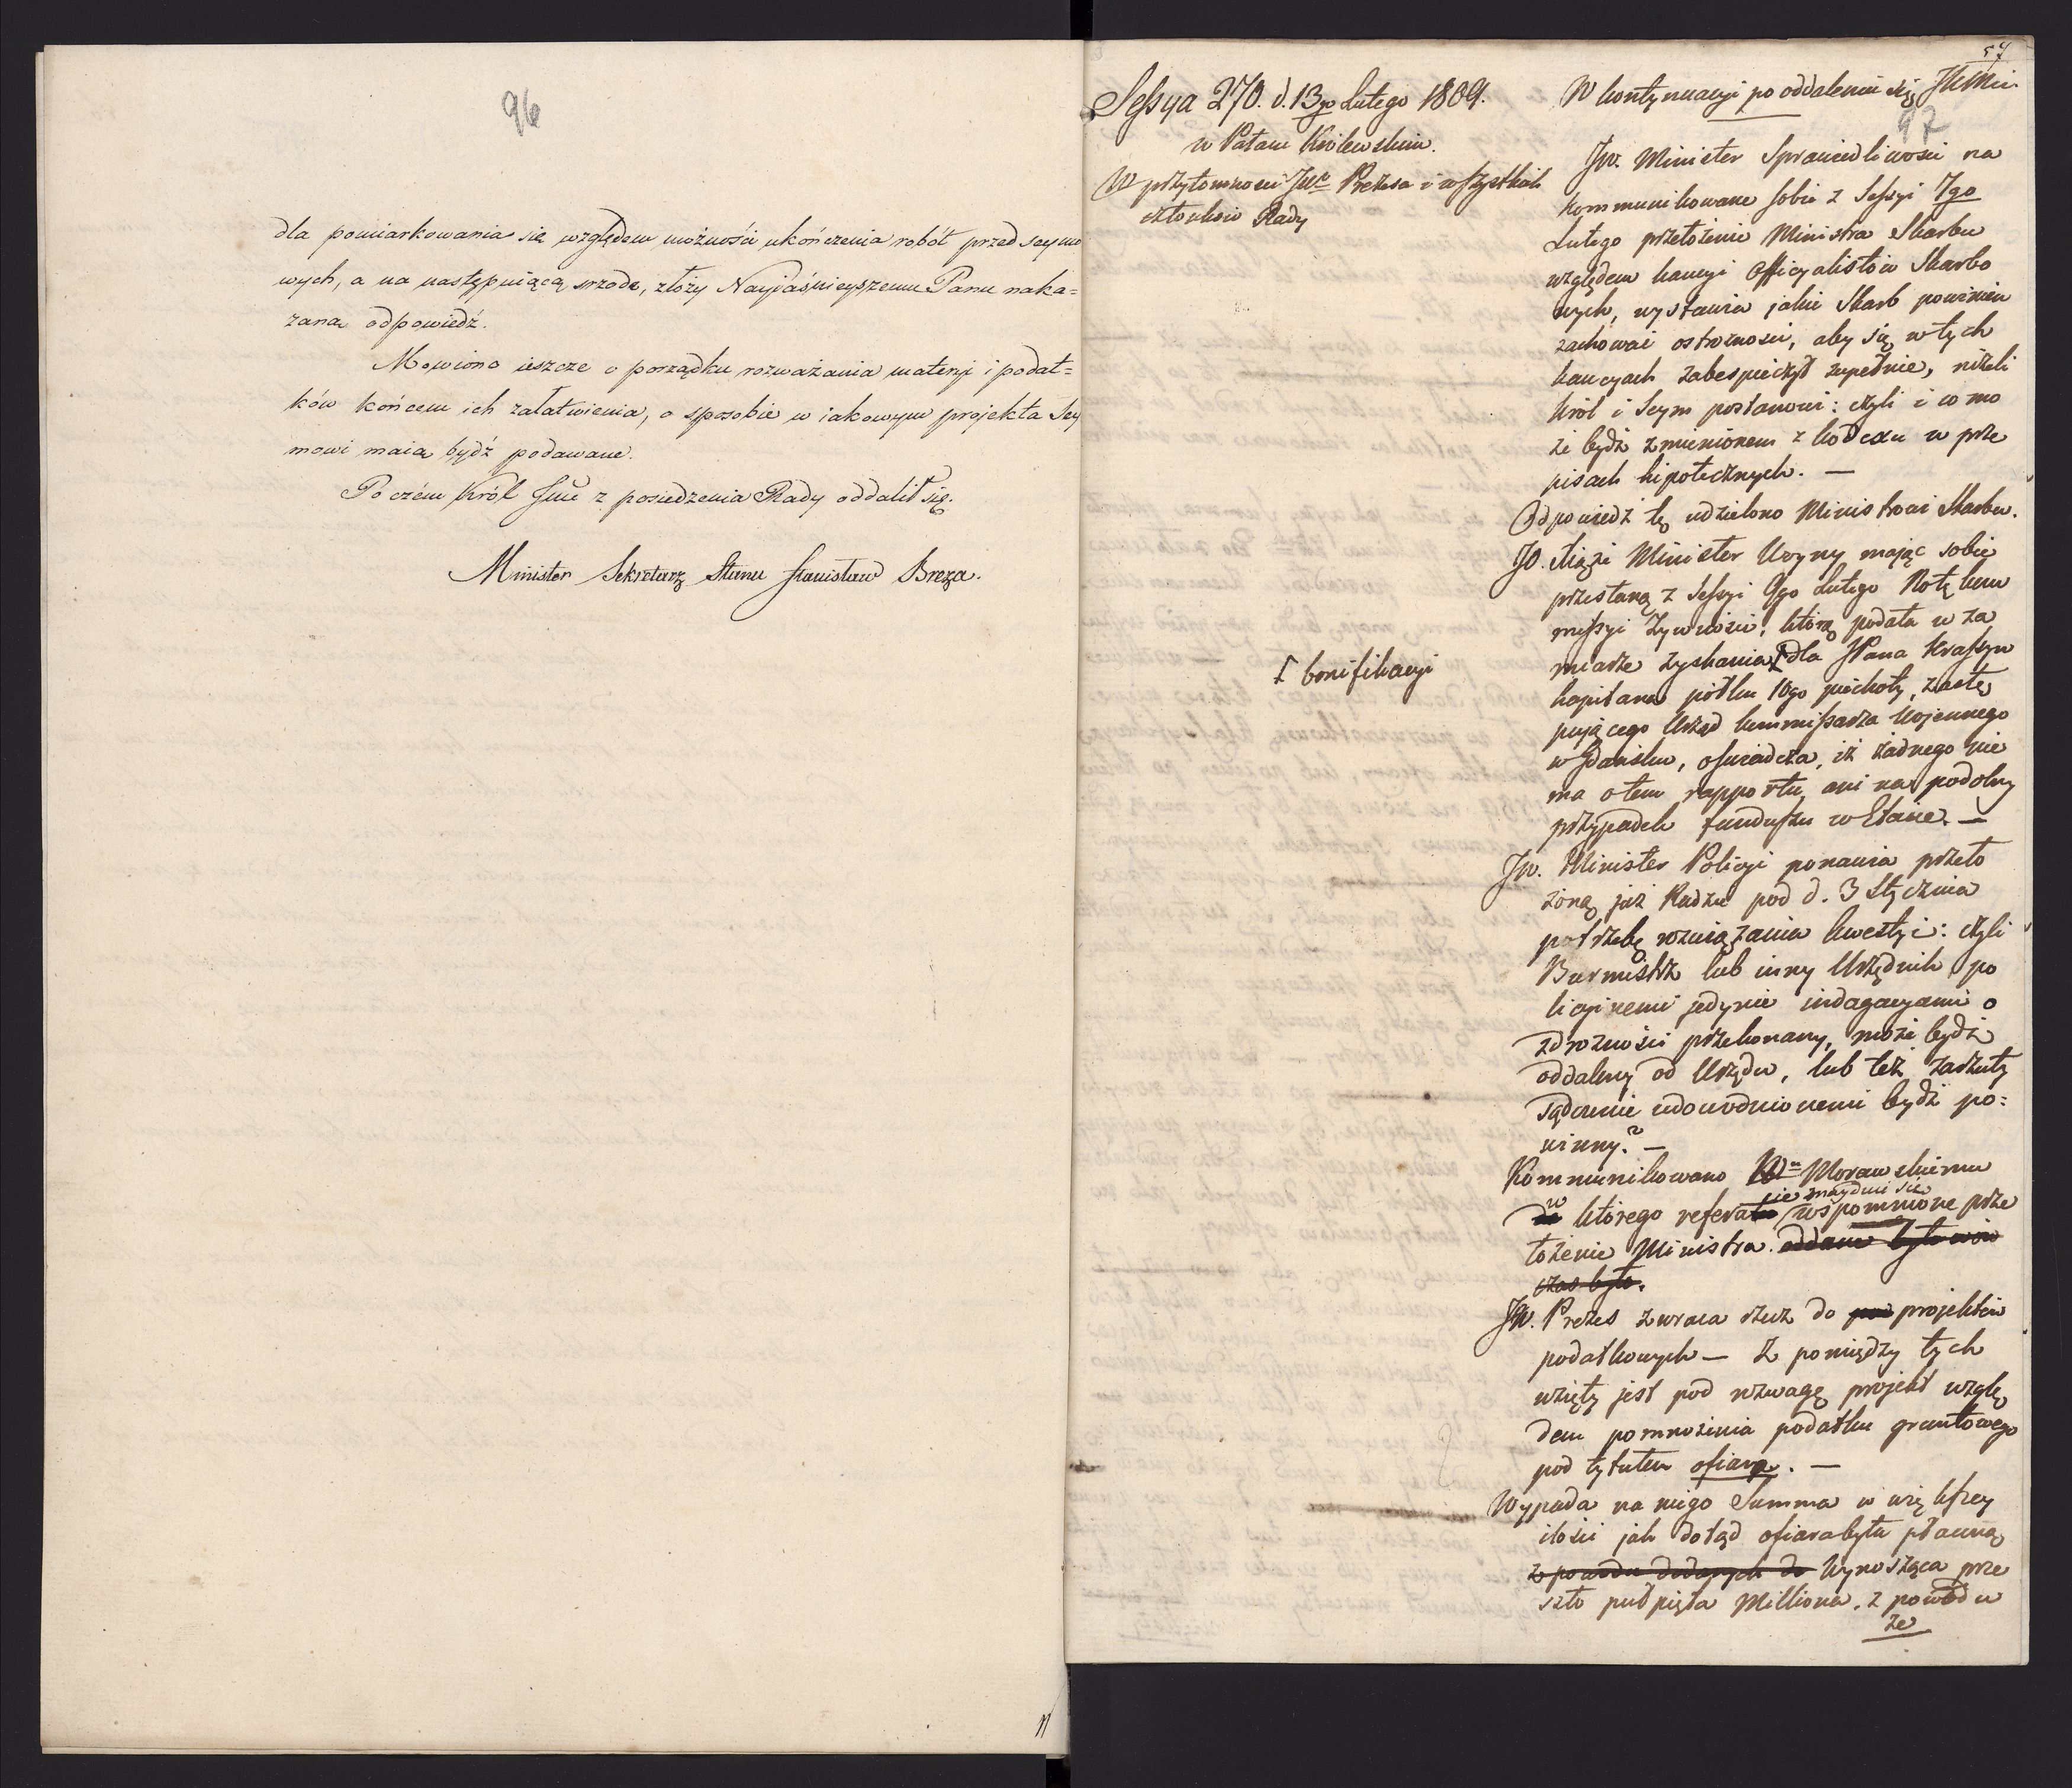 96
dla pomiarkowania się względem możności ukończenia robót przed seymo
wych, a na następuiącą srzodę, złoży Nayiaśnieyszemu Panu naka=
zaną odpowiedź.
Mowiono ieszcze o porządku rozważania materyi i podat=
ków końcem ich załatwienia, o sposobie w iakowym projekta Sey
mowi maią bydź podawane.
Po czém Król Jmć z posiedzenia Rady oddalił się.
Minister Sekretarz Stanu Stanisław Breza.
57
97
Sessya 270. d. 13go Lutego 1809.
w Pałacu Królewskim.
W przytomności JWo Prezesa i wszystkich
członków Rady
W kontynuacyi po oddaleniu się JKMci.
JW. Minister Sprawiedliwości na
kommunikowane sobie z Sessyi 7go
Lutego przełożenie Ministra Skarbu
względem kaucyi Officyalistów Skarbo
wych, wystawia jakie Skarb powinien
zachować ostrożności, aby się w tych
kaucyach zabespieczył zupełnie, niżeli
Król i Seym postanowi: czyli i co mo
że bydź zmienionem z kodexu w prze
pisach hipotecznych. —
Odpowiedź tę udzielono Ministrowi Skarbu.
JO. Xiąże Minister Woyny mając sobie
przesłaną z Sessyi 9go Lutego Notę kom
missyi Żywności, którą podała w za
miarze zyskania ſ dla JPana Krassyn
ſ bonifikacyi
kapitana półku 10go piechoty, zastę
pującego Urząd kommissarza Wojennego
w Gdańsku, oświadcza, iż żadnego nie
ma o tem rapportu, ani na podobny
przypadek funduszu w Etacie. —
JW. Minister Policyi ponawia przeło
żoną już Radzie pod d. 3 Stycznia
potrzebę rozwiązania kwestyi: czyli
Burmistrz lub inny Urzędnik po
licyinemi jedynie indagacyami o
zdrożności przekonany, może bydź
oddalony od Urzędu, lub też zarzuty
sądownie udowodnionemi bydź po=
winny? —
Kommunikowano Wu Morawskiemu
w którego refera nie znayduie się wspomnione prze
łożenie Ministra. oddane było wów
czas było.
JW. Prezes zwraca rzecz do pod projektów
podatkowych — Z pomiędzy tych
wzięty jest pod rozwagę projekt wzglę
dem pomnożenia podatku gruntowego
pod tytułem ofiara. —
Wypada na niego Summa w większey
ilości jak dotąd ofiara była płaconą,
z powodu dodanych do wynosząca prze
szło puł pięta Milliona, z powodu
że